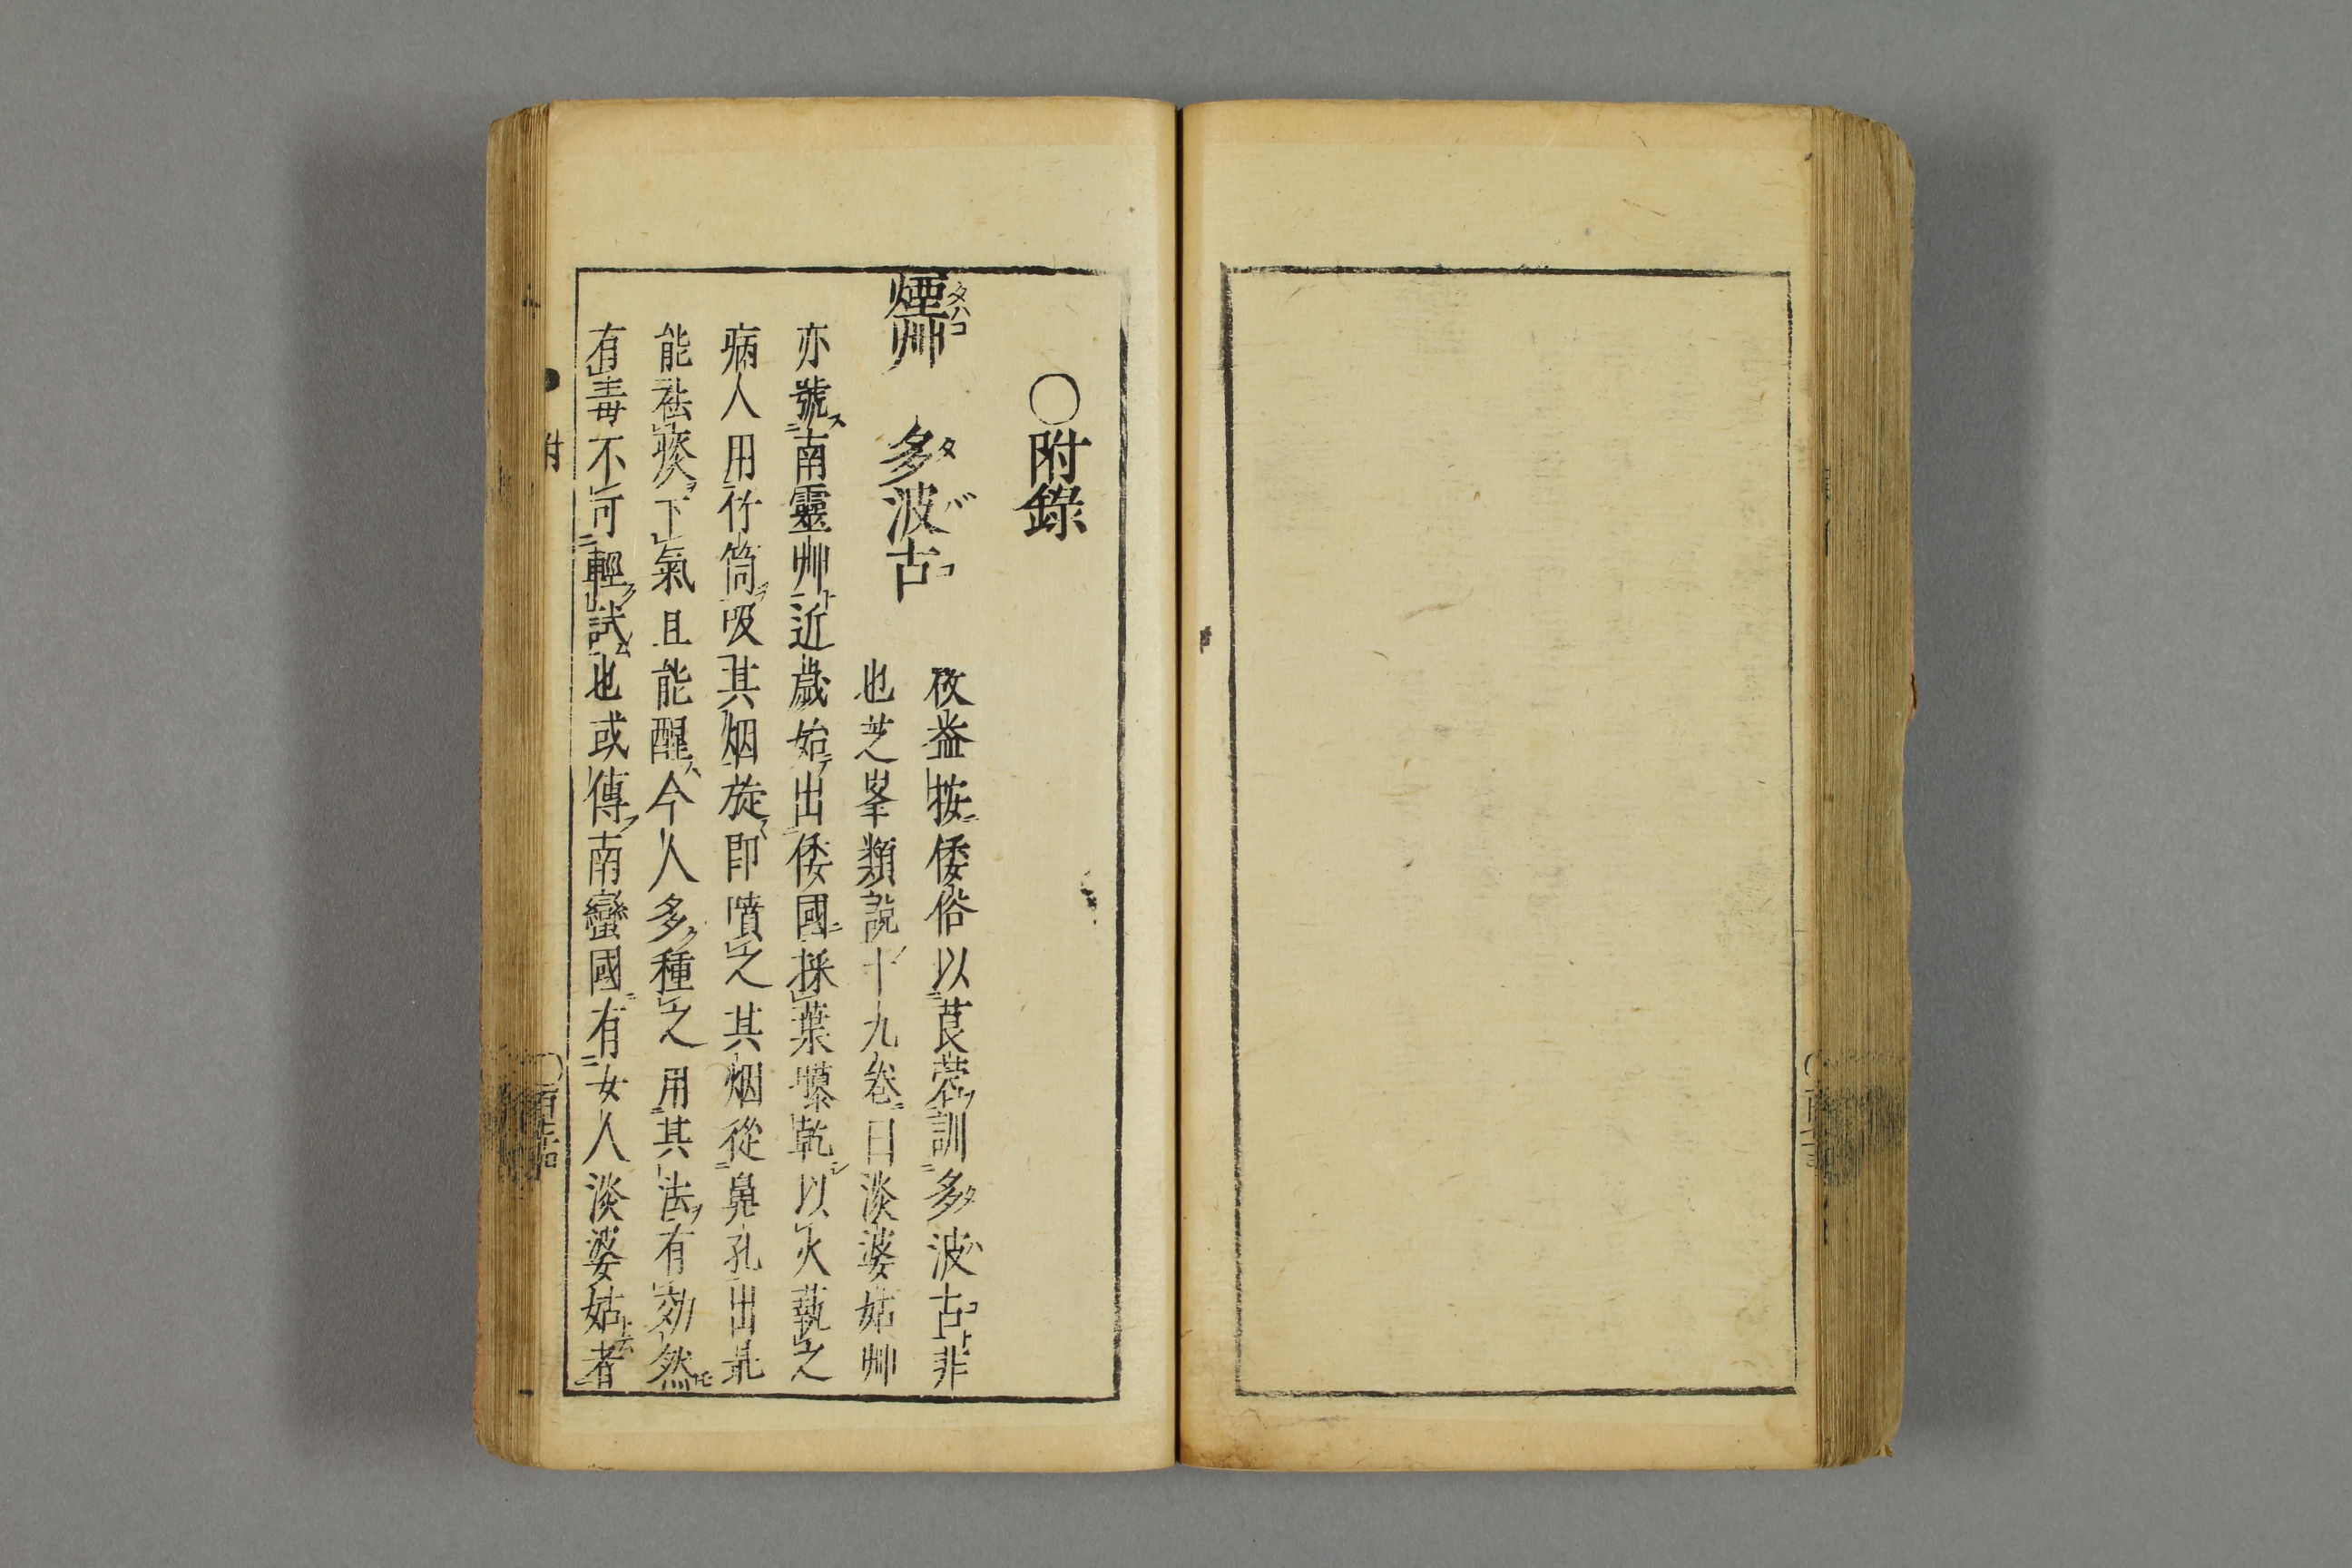 ○附錄
煙艸 多波古
攷益按倭俗以莨菪訓多波古非
也芝峯類說十九卷曰淡婆姑艸
亦號南靈艸近歲始出倭國採葉曝乾以火爇之
病人用竹筒吸其烟旋即噴之其烟從鼻孔出最
能祛痰下氣且能醒今人多種之用其法有効然
有毒不可輕試也或傳南蠻國有女人淡婆姑者
附